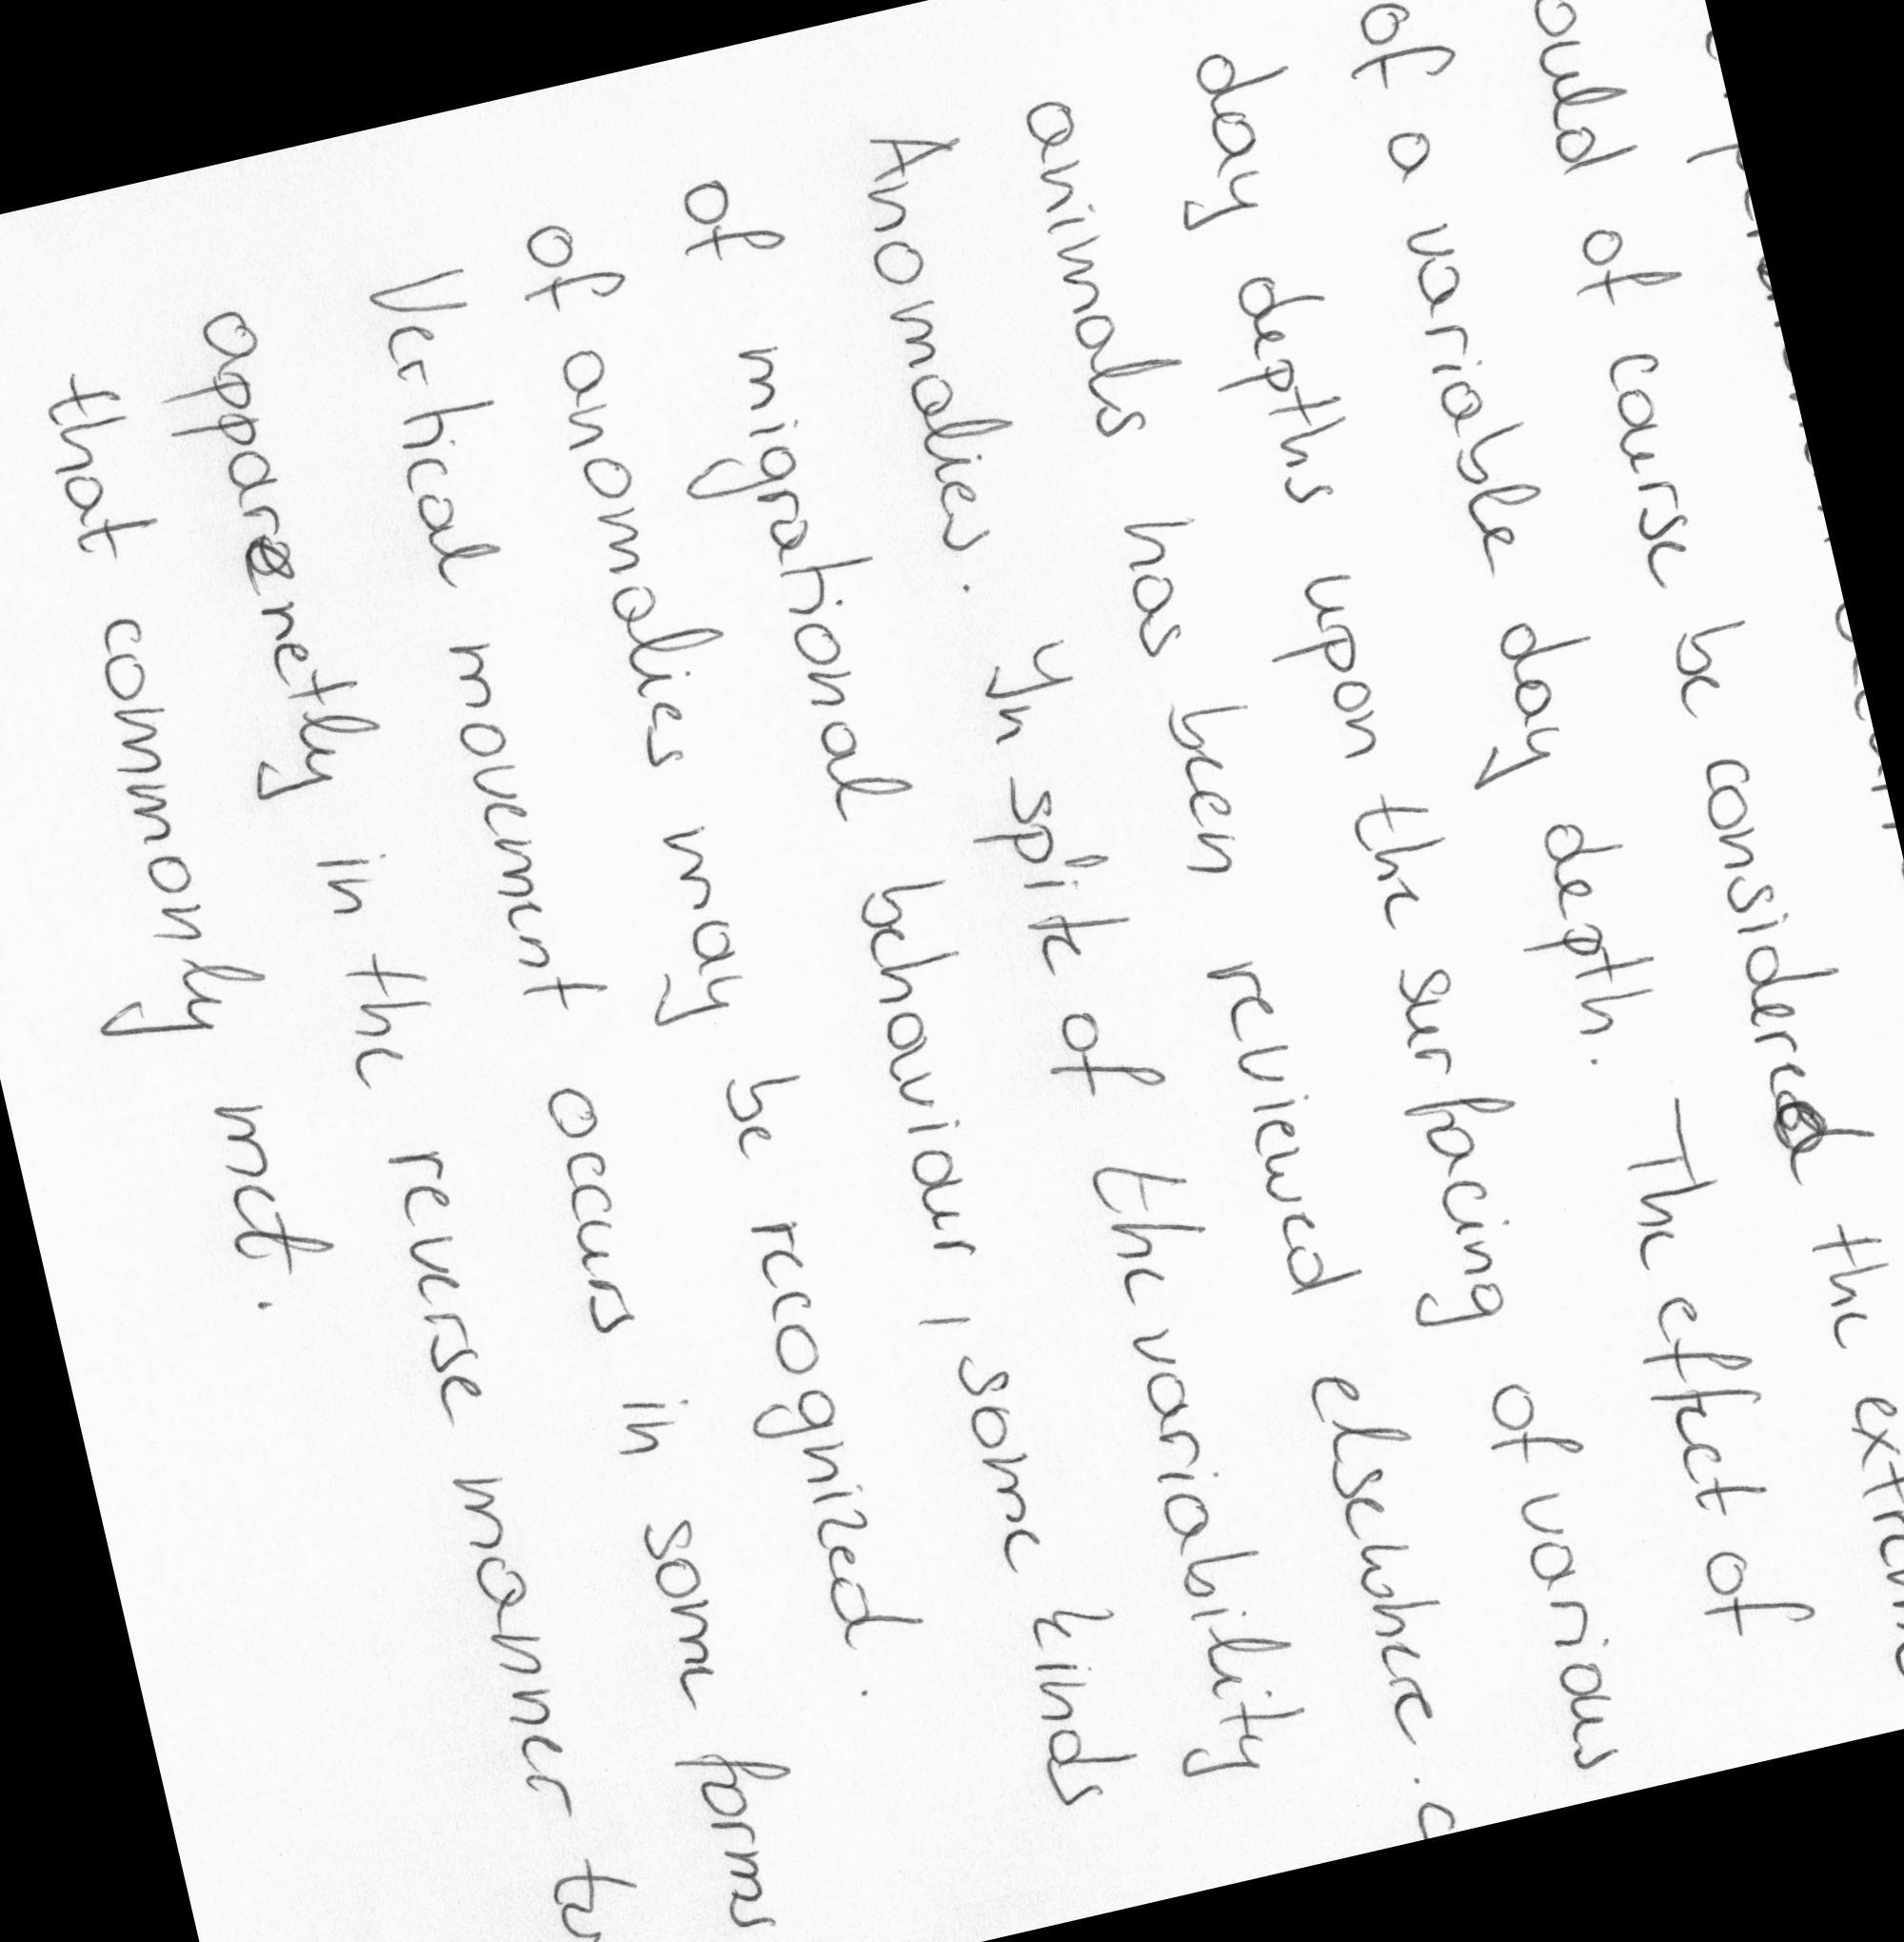 ould of course be considered the
of a variable day depth. The effect of
day depths upon the surfacing of various
animals has been reviewed elsewhere.
Anomalies. In spite of the variability
of migrational behaviour, some kinds
of anomalies may be recognized.
Vertical movement occurs in some forms
apparenetly in the reverse manner to
that commonly met.